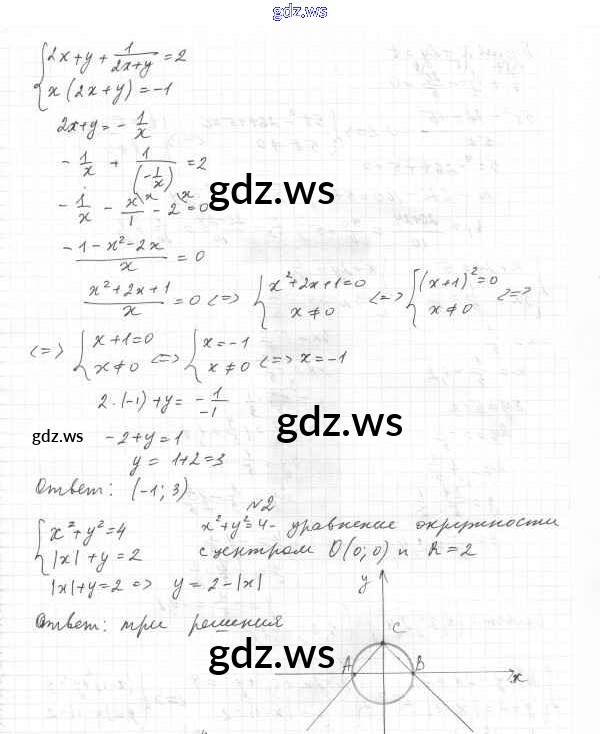 gdz.ws
{ 2x+y + 1/(2x+y) = 2
{ x(2x+y) = -1
2x+y = - 1/x
- 1/x + 1/(-1/x) = 2
gdz.ws
- 1/x - x\x/1 - 2\x = 0
(-1-x²-2x)/x = 0
(x²+2x+1)/x = 0 <=> { x²+2x+1=0 x≠0 <=> { (x+1)²=0 x≠0 <=>
<=> { x+1=0 x≠0 <=> { x=-1 x≠0 <=> x=-1
2·(-1)+y = - 1/-1
gdz.ws
gdz.ws
-2+y=1
y = 1+2=3
Ответ: (-1; 3)
№2
{ x²+y²=4
{ |x|+y=2
x²+y²=4- уравнение окружности
с центром O(0; 0) и R=2
|x|+y=2 => y=2-|x|
Ответ: три решения
gdz.ws
y
C
A
B
x